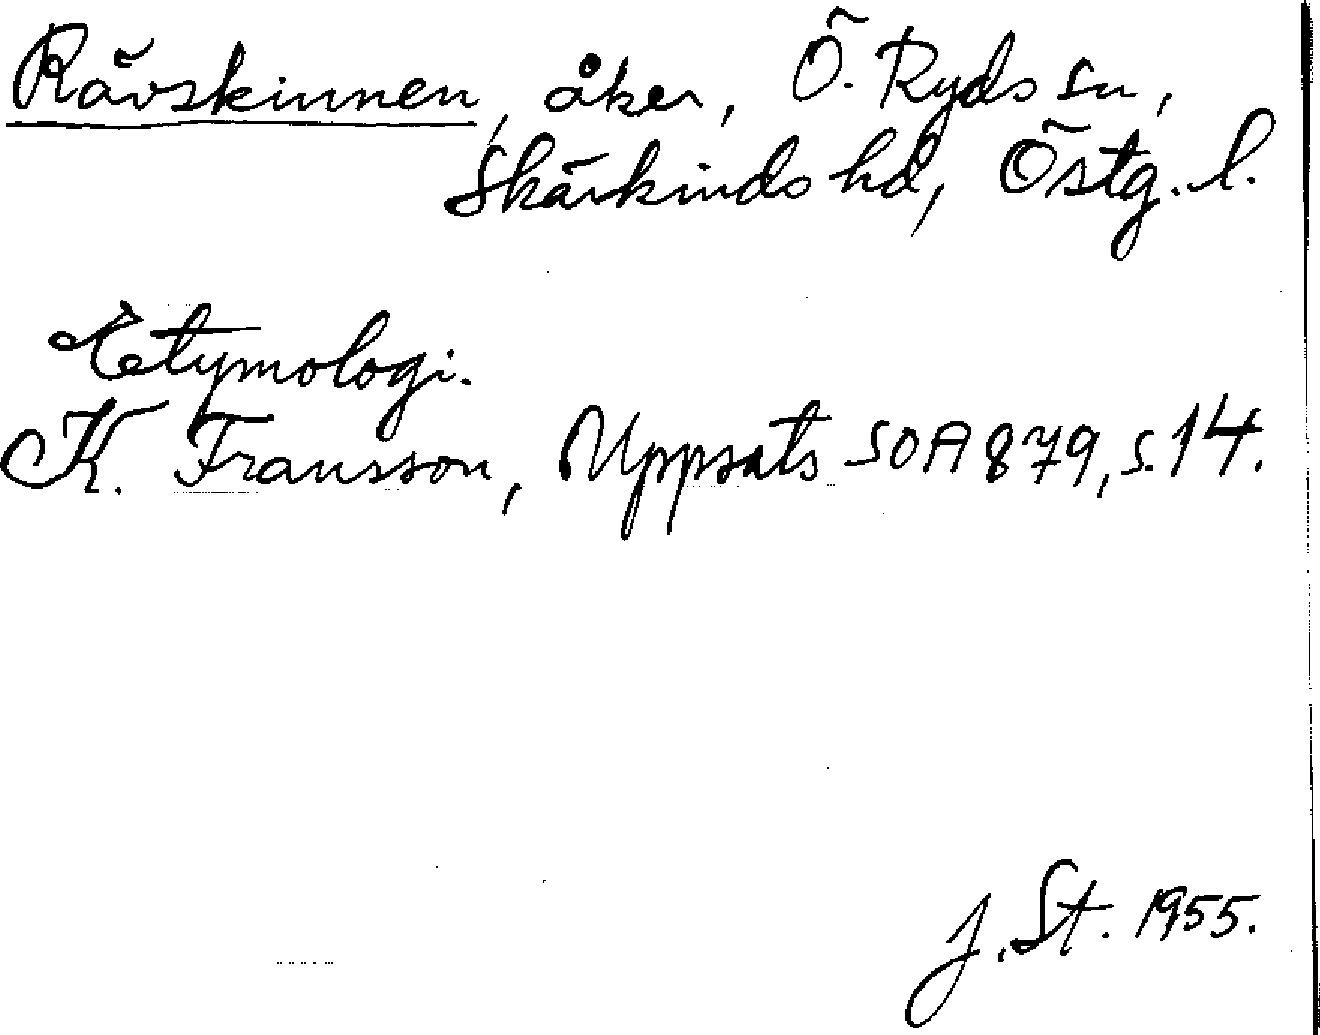 Rävskinnen, åker, Ö. Ryds sn,
Skärkinds hd, Östg. l.
Etymologi.
K. Fransson, Uppsats SOA 879, s. 14.
J. St. 1955.